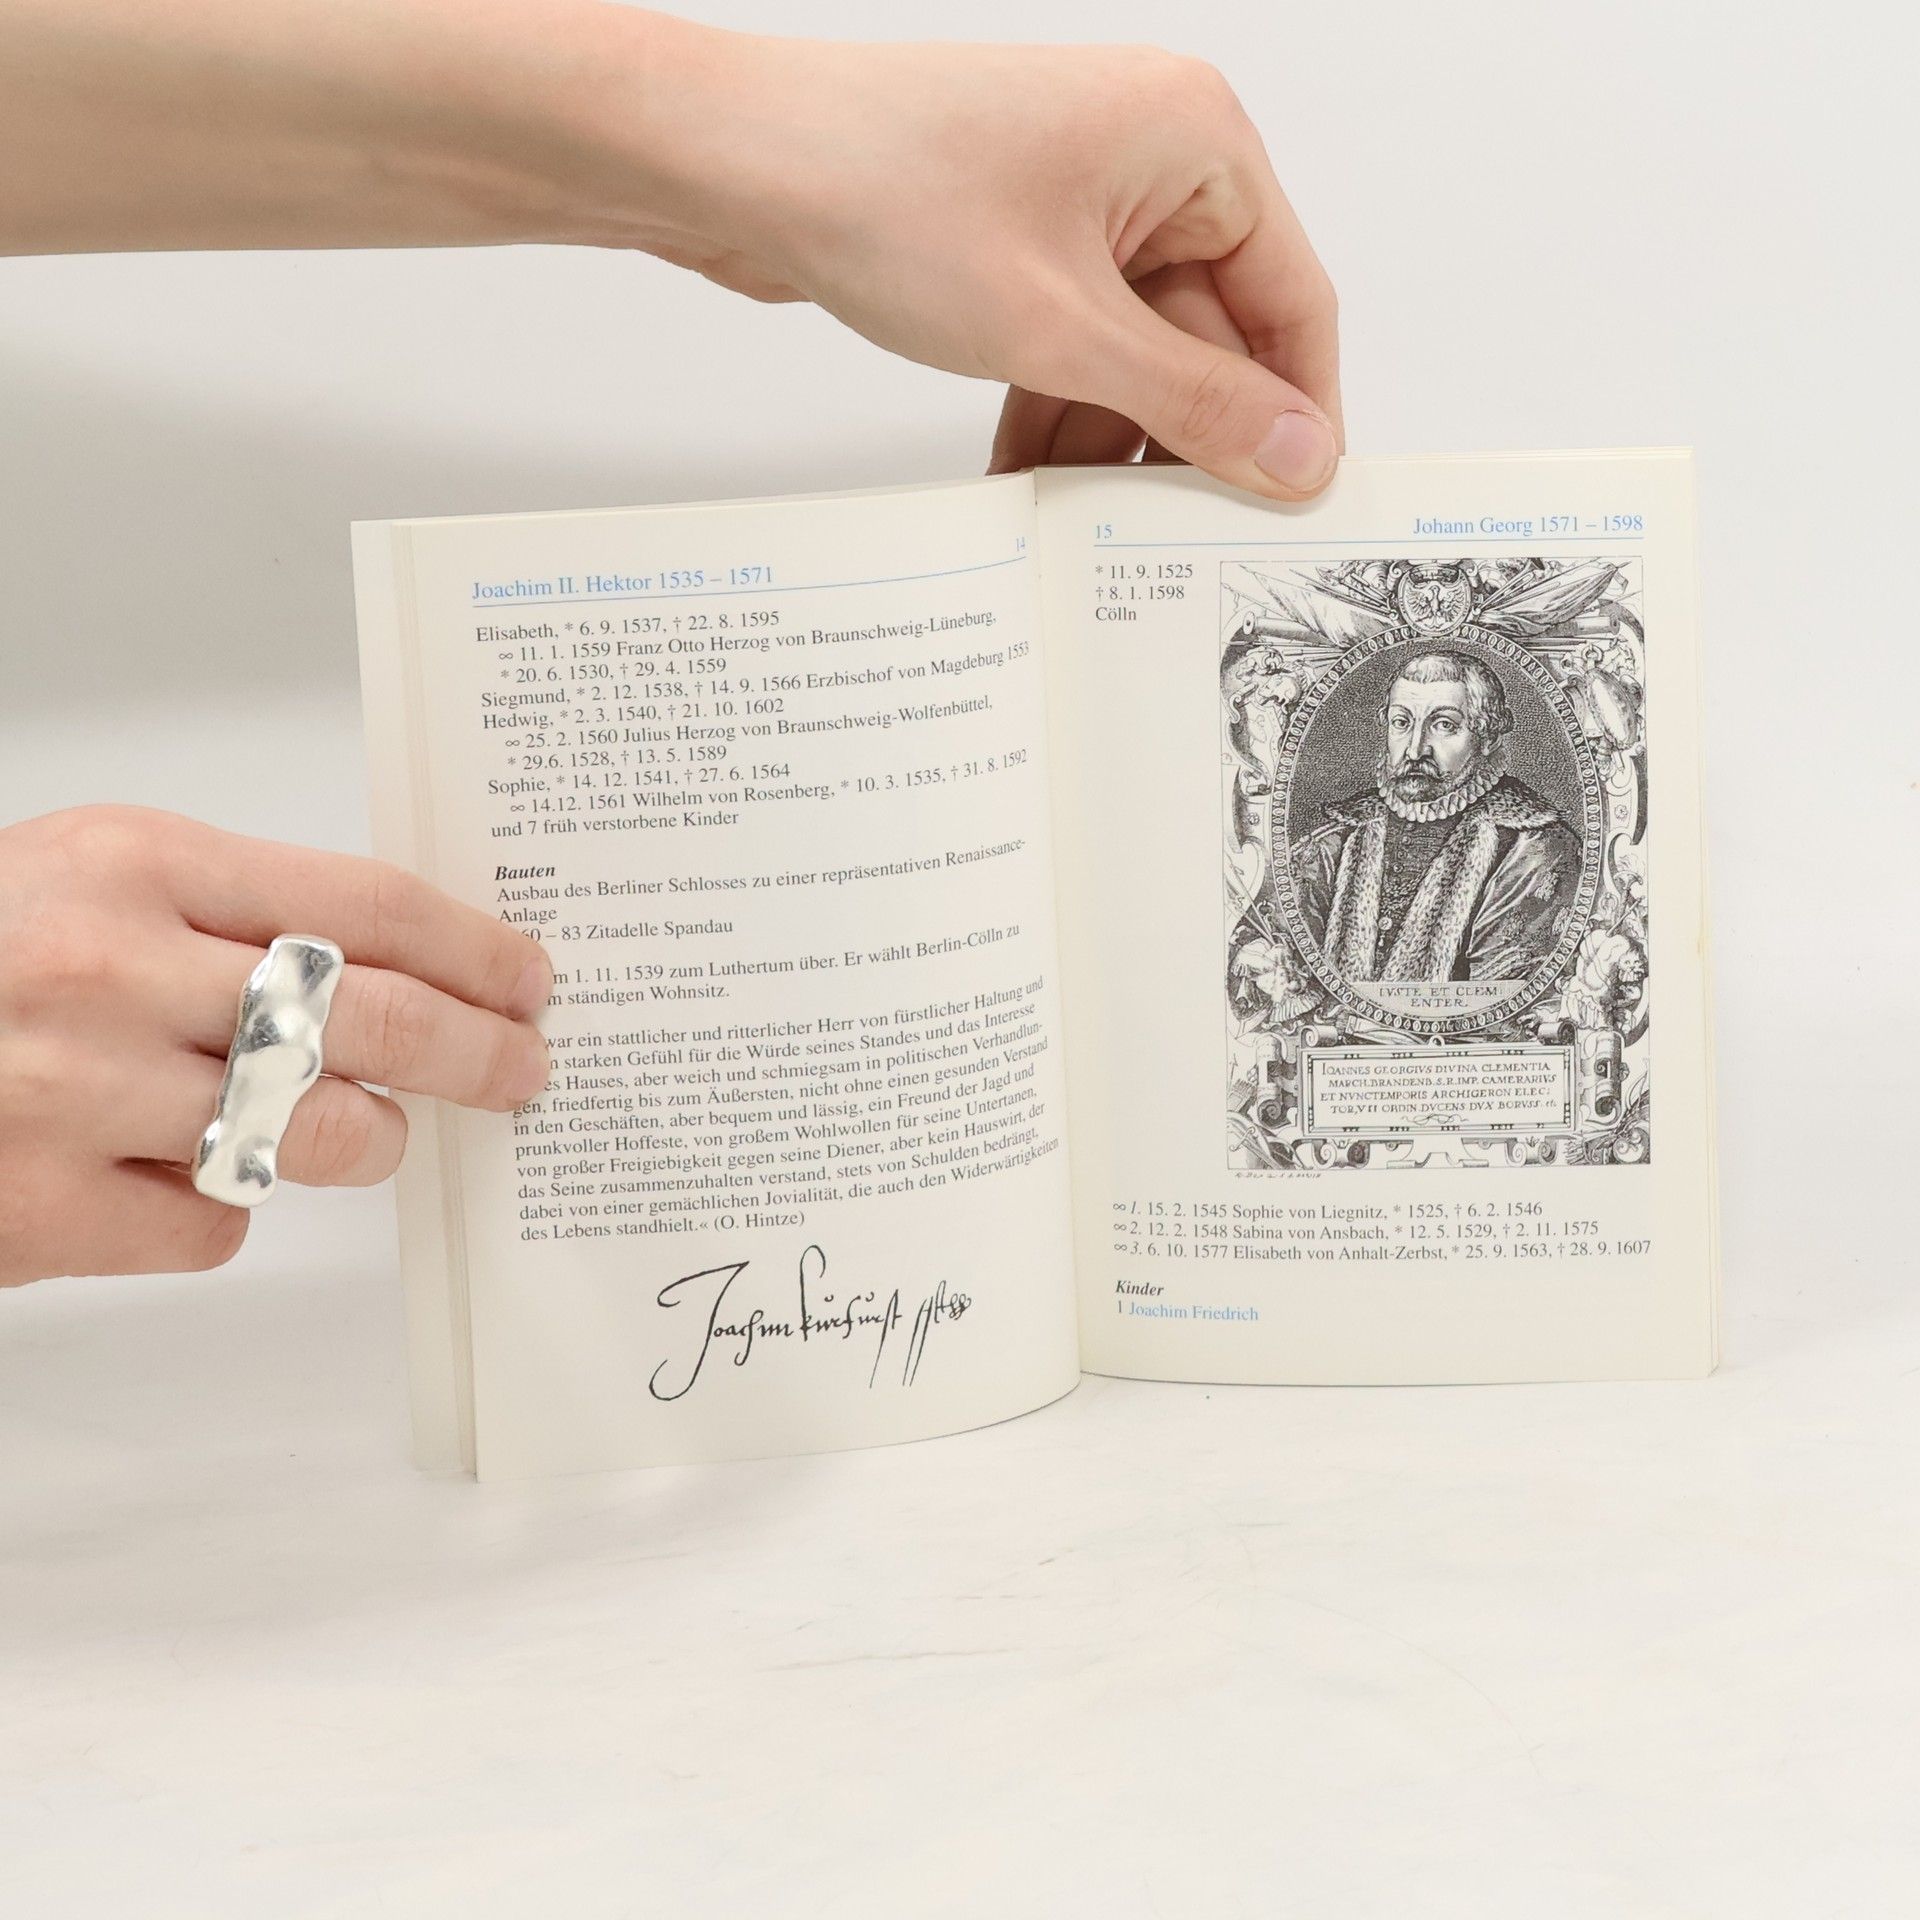 14
Joachim II. Hektor 1535 – 1571
Elisabeth, * 6. 9. 1537, † 22. 8. 1595
∞ 11. 1. 1559 Franz Otto Herzog von Braunschweig-Lüneburg,
* 20. 6. 1530, † 29. 4. 1559
Siegmund, * 2. 12. 1538, † 14. 9. 1566 Erzbischof von Magdeburg 1553
Hedwig, * 2. 3. 1540, † 21. 10. 1602
∞ 25. 2. 1560 Julius Herzog von Braunschweig-Wolfenbüttel,
* 29.6. 1528, † 13. 5. 1589
Sophie, * 14. 12. 1541, † 27. 6. 1564
∞ 14.12. 1561 Wilhelm von Rosenberg, * 10. 3. 1535, † 31. 8. 1592
und 7 früh verstorbene Kinder
Bauten
Ausbau des Berliner Schlosses zu einer repräsentativen Renaissance-
Anlage
60 – 83 Zitadelle Spandau
m 1. 11. 1539 zum Luthertum über. Er wählt Berlin-Cölln zu
m ständigen Wohnsitz.
war ein stattlicher und ritterlicher Herr von fürstlicher Haltung und
n starken Gefühl für die Würde seines Standes und das Interesse
es Hauses, aber weich und schmiegsam in politischen Verhandlun-
gen, friedfertig bis zum Äußersten, nicht ohne einen gesunden Verstand
in den Geschäften, aber bequem und lässig, ein Freund der Jagd und
prunkvoller Hoffeste, von großem Wohlwollen für seine Untertanen,
von großer Freigiebigkeit gegen seine Diener, aber kein Hauswirt, der
das Seine zusammenzuhalten verstand, stets von Schulden bedrängt,
dabei von einer gemächlichen Jovialität, die auch den Widerwärtigkeiten
des Lebens standhielt.« (O. Hintze)
Joachim kurfurst
15 Johann Georg 1571 – 1598
* 11. 9. 1525
† 8. 1. 1598
Cölln
IVSTE ET CLEM
ENTER.
IOANNES GEORGIVS DIVINA CLEMENTIA
MARCH.BRANDENB.S.R.IMP. CAMERARIVS
ET NVNCTEMPORIS ARCHIGERON ELEC:
TOR,VII ORDIN.DVCENS DVX BORVSS. etc
∞ 1. 15. 2. 1545 Sophie von Liegnitz, * 1525, † 6. 2. 1546
∞ 2. 12. 2. 1548 Sabina von Ansbach, * 12. 5. 1529, † 2. 11. 1575
∞ 3. 6. 10. 1577 Elisabeth von Anhalt-Zerbst, * 25. 9. 1563, † 28. 9. 1607
Kinder
1 Joachim Friedrich